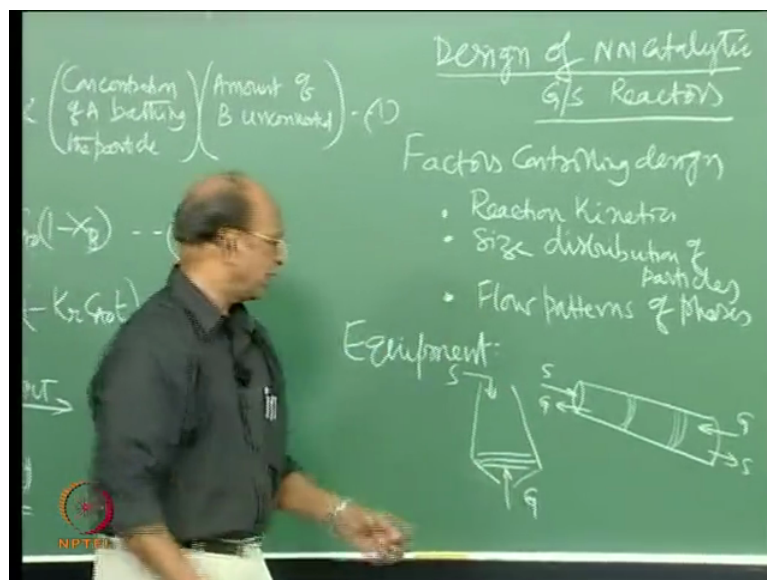 (Concentration of A bathing the particle) (Amount of B unconverted) - (1)
(1-X_B) ---
- K_r C_A0 t)
out
Design of NM Catalytic
G/S Reactors
Factors Controlling design
• Reaction Kinetics
• Size distribution of
particles
• Flow patterns of phases
Equipment:
S
G
S
G
G
S
NPTEL